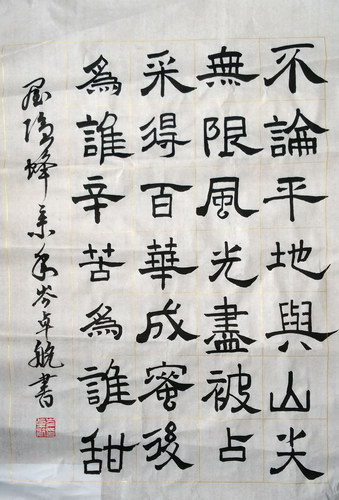 不論平地與山尖
無限風光盡被占
采得百華成蜜後
為誰辛苦為誰甜
岑卓航書